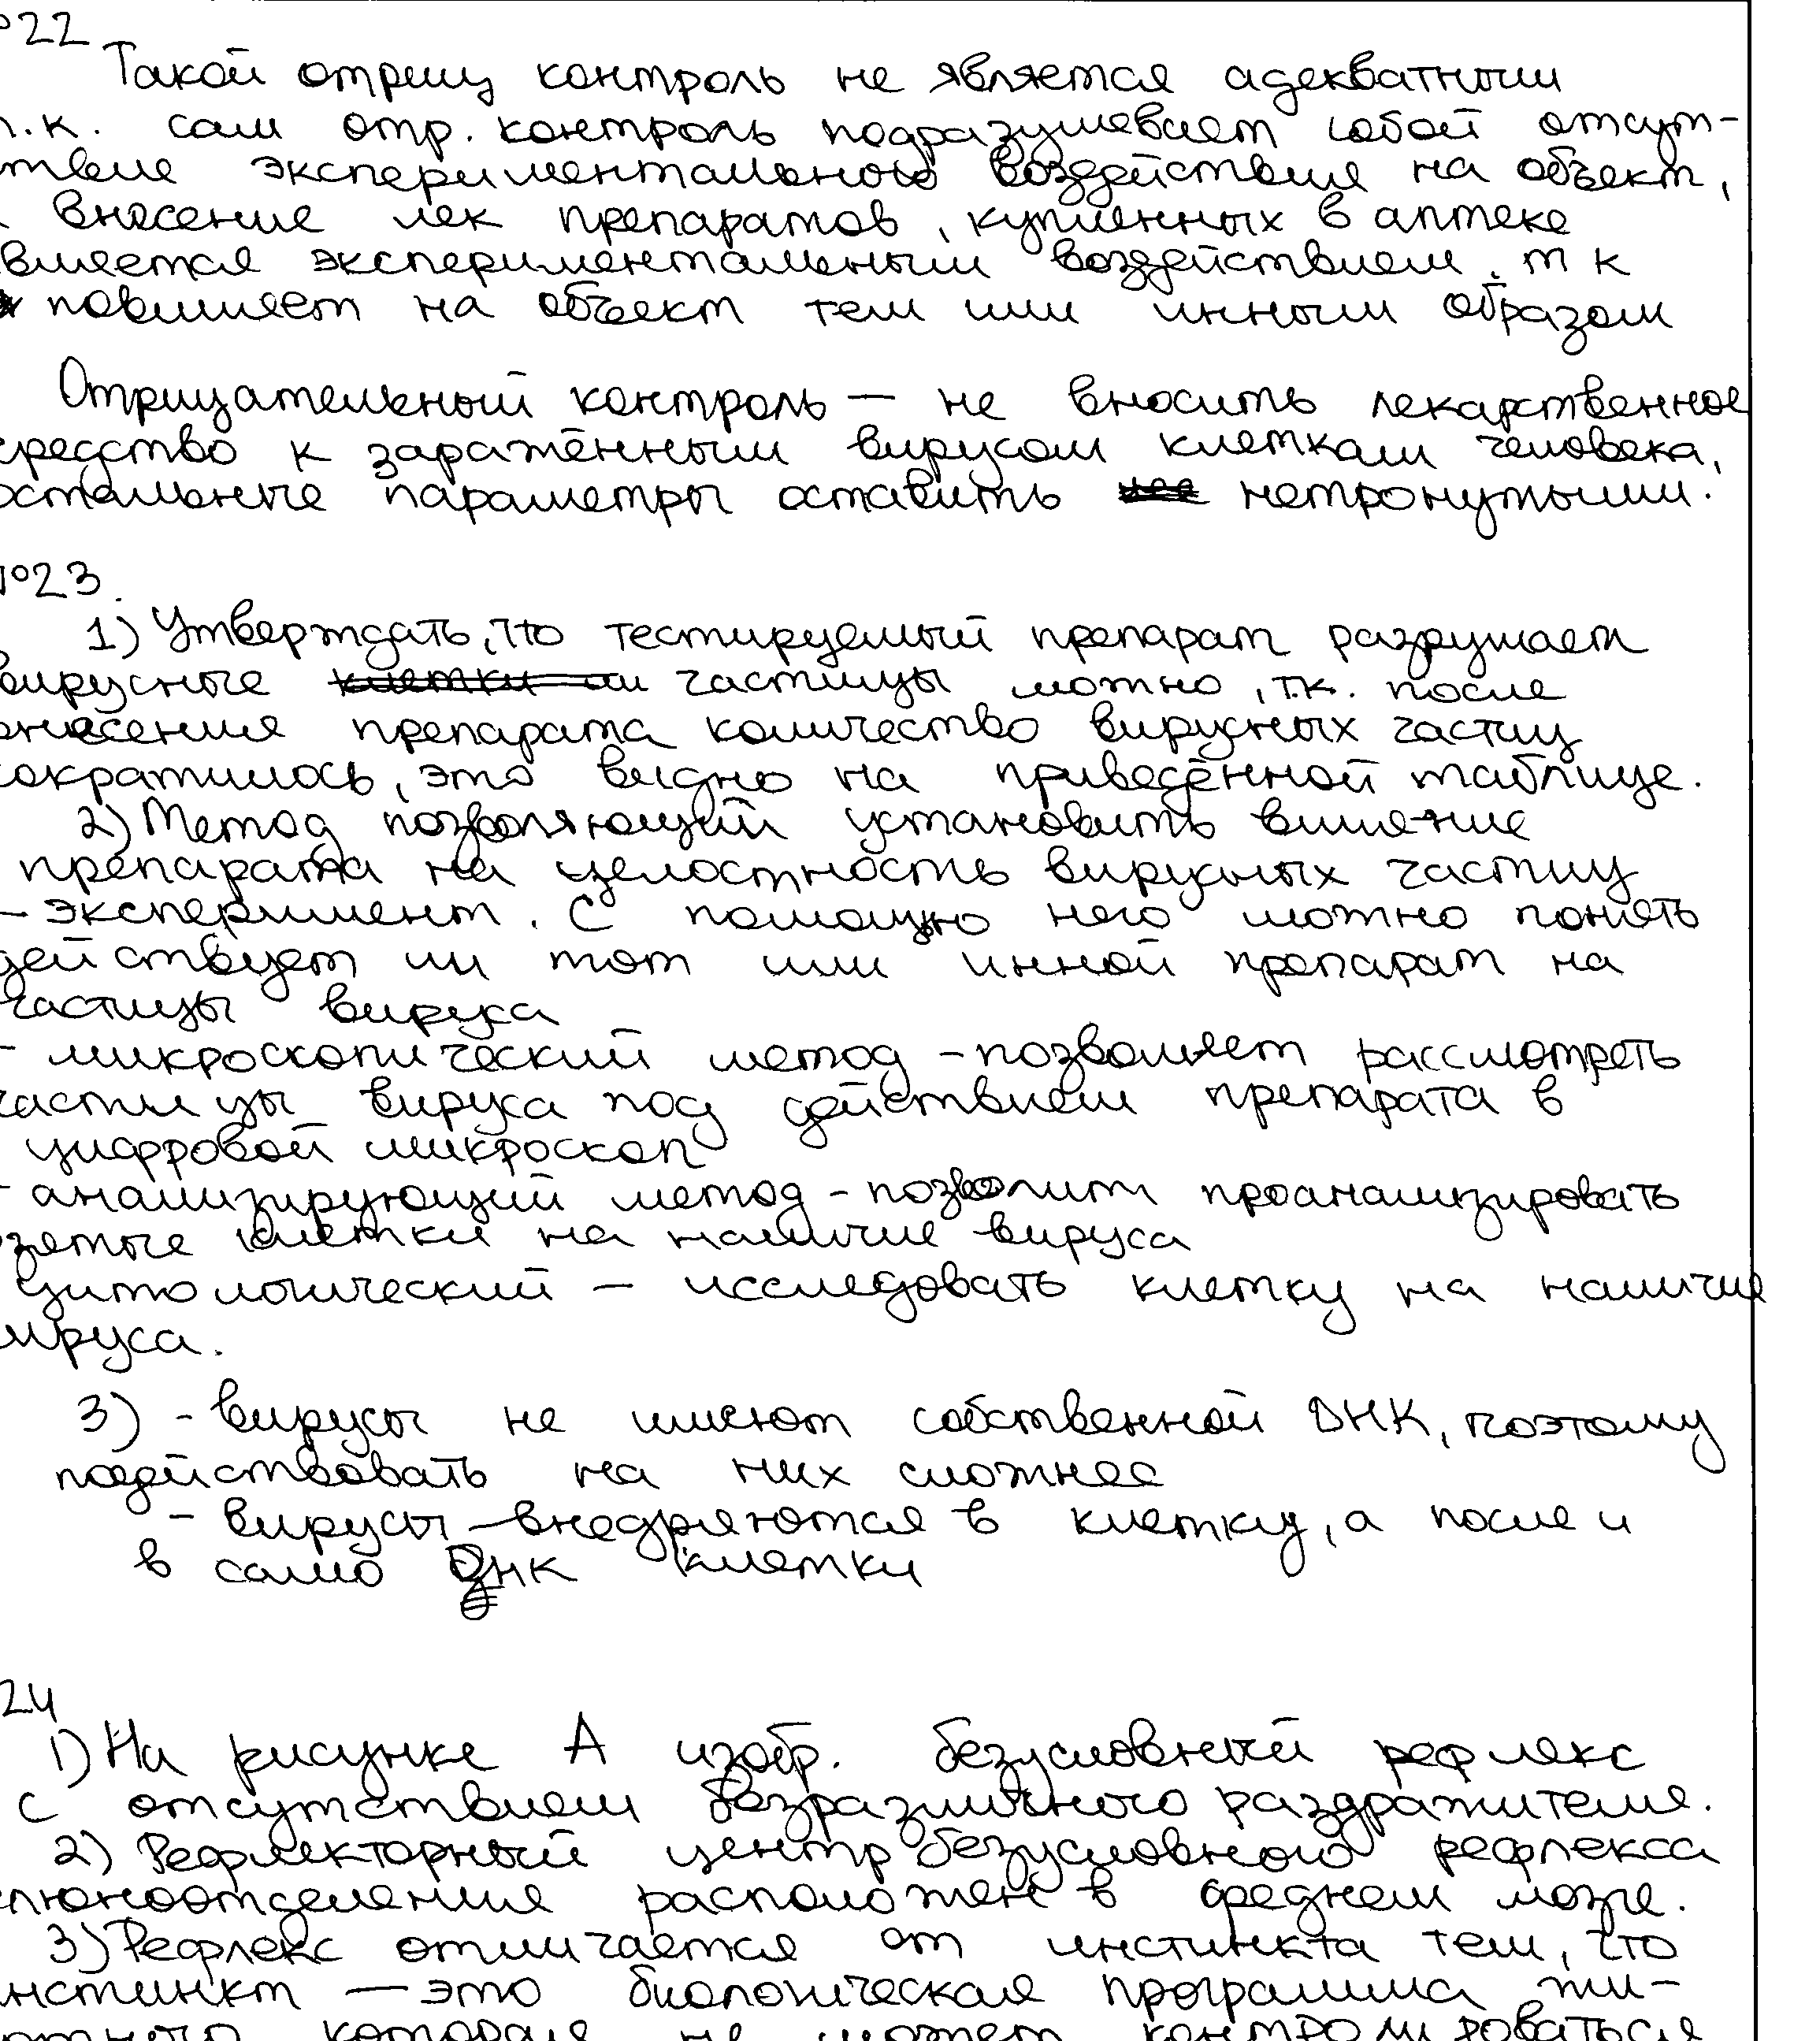 №22
Такой отриц контроль не является адекватным
т.к. сам отр. контроль подразумевает собой отсут-
твие экспериментального воздействие на объект,
внесение лек препаратов, купленных в аптеке
является экспериментальным воздействием, т к
повлияет на объект тем или инным образом
Отрицательный контроль — не вносить лекарственное
средство к заражённым вирусом клеткам человека,
остальные параметры оставить нетронутыми.
№23.
1) Утверждать, что тестируемый препарат разрушает
вирусные частицы можно, т.к. после
внесения препарата количество вирусных частиц
сократилось, это видно на приведённой таблице.
2) Метод позволяющий установить влияние
препарата на целостность вирусных частиц
— эксперимент. С помощью него можно понять
действует ли тот или инной препарат на
частицы вируса
- микроскопический метод - позволяет рассмотреть
частицы вируса под действием препарата в
цифровой микроскоп
- анализирующий метод - позволит проанализировать
взятые клетки на наличие вируса
цитологический — исследовать клетку на наличие
вируса.
3) - вирусы не имеют собственной ДНК, поэтому
подействовать на них сложнее
- вирусы внедряются в клетку, а после и
в само ДНК клетки
24
1) На рисунке А изобр. безусловный рефлекс
с отсутствием безразличного раздражителя.
2) Рефлекторный центр безусловного рефлекса
слюноотделения расположен в среднем мозге.
3) Рефлекс отличается от инстинкта тем, что
инстинкт — это биологическая программа жи-
вотного которая не может контролироваться